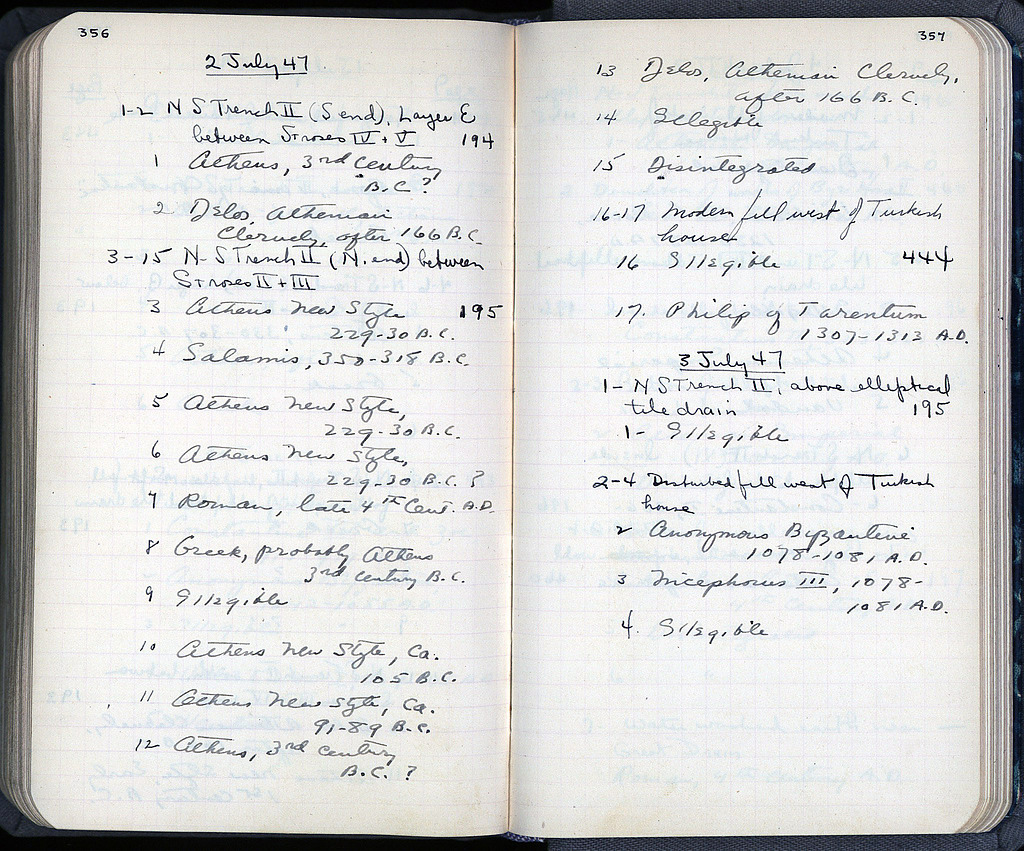 356
2 July 47
1-2 N S Trench II (S end), Layer E
between Stroses IV + V 194
1 Athens, 3rd century
B.C.?
2 Delos, Athenian
Cleruchy, after 166 B.C.
3-15 N-S Trench II (N. end) between
Stroses II + III
3 Athens New Style 195
229-30 B.C.
4 Salamis, 350-318 B.C.
5 Athens New Style,
229-30 B.C.
6 Athens New Style,
229-30 B.C.?
7 Roman, late 4th Cent. A.D.
8 Greek, probably Athens
3rd century B.C.
9 Illegible
10 Athens New Style, Ca.
105 B.C.
11 Athens New Style, Ca.
91-89 B.C.
12 Athens, 3rd century
B.C.?
357
13 Delos, Athenian Cleruchy,
after 166 B.C.
14 Illegible
15 Disintegrated
16-17 Modern fill west of Turkish
house
16 Illegible 444
17. Philip of Tarentum
1307-1313 A.D.
3 July 47
1- N S Trench II, above elliptical
tile drain 195
1- Illegible
2-4 Disturbed fill west of Turkish
house
2 Anonymous Byzantine
1078-1081 A.D.
3 Nicephorus III, 1078-
1081 A.D.
4. Illegible